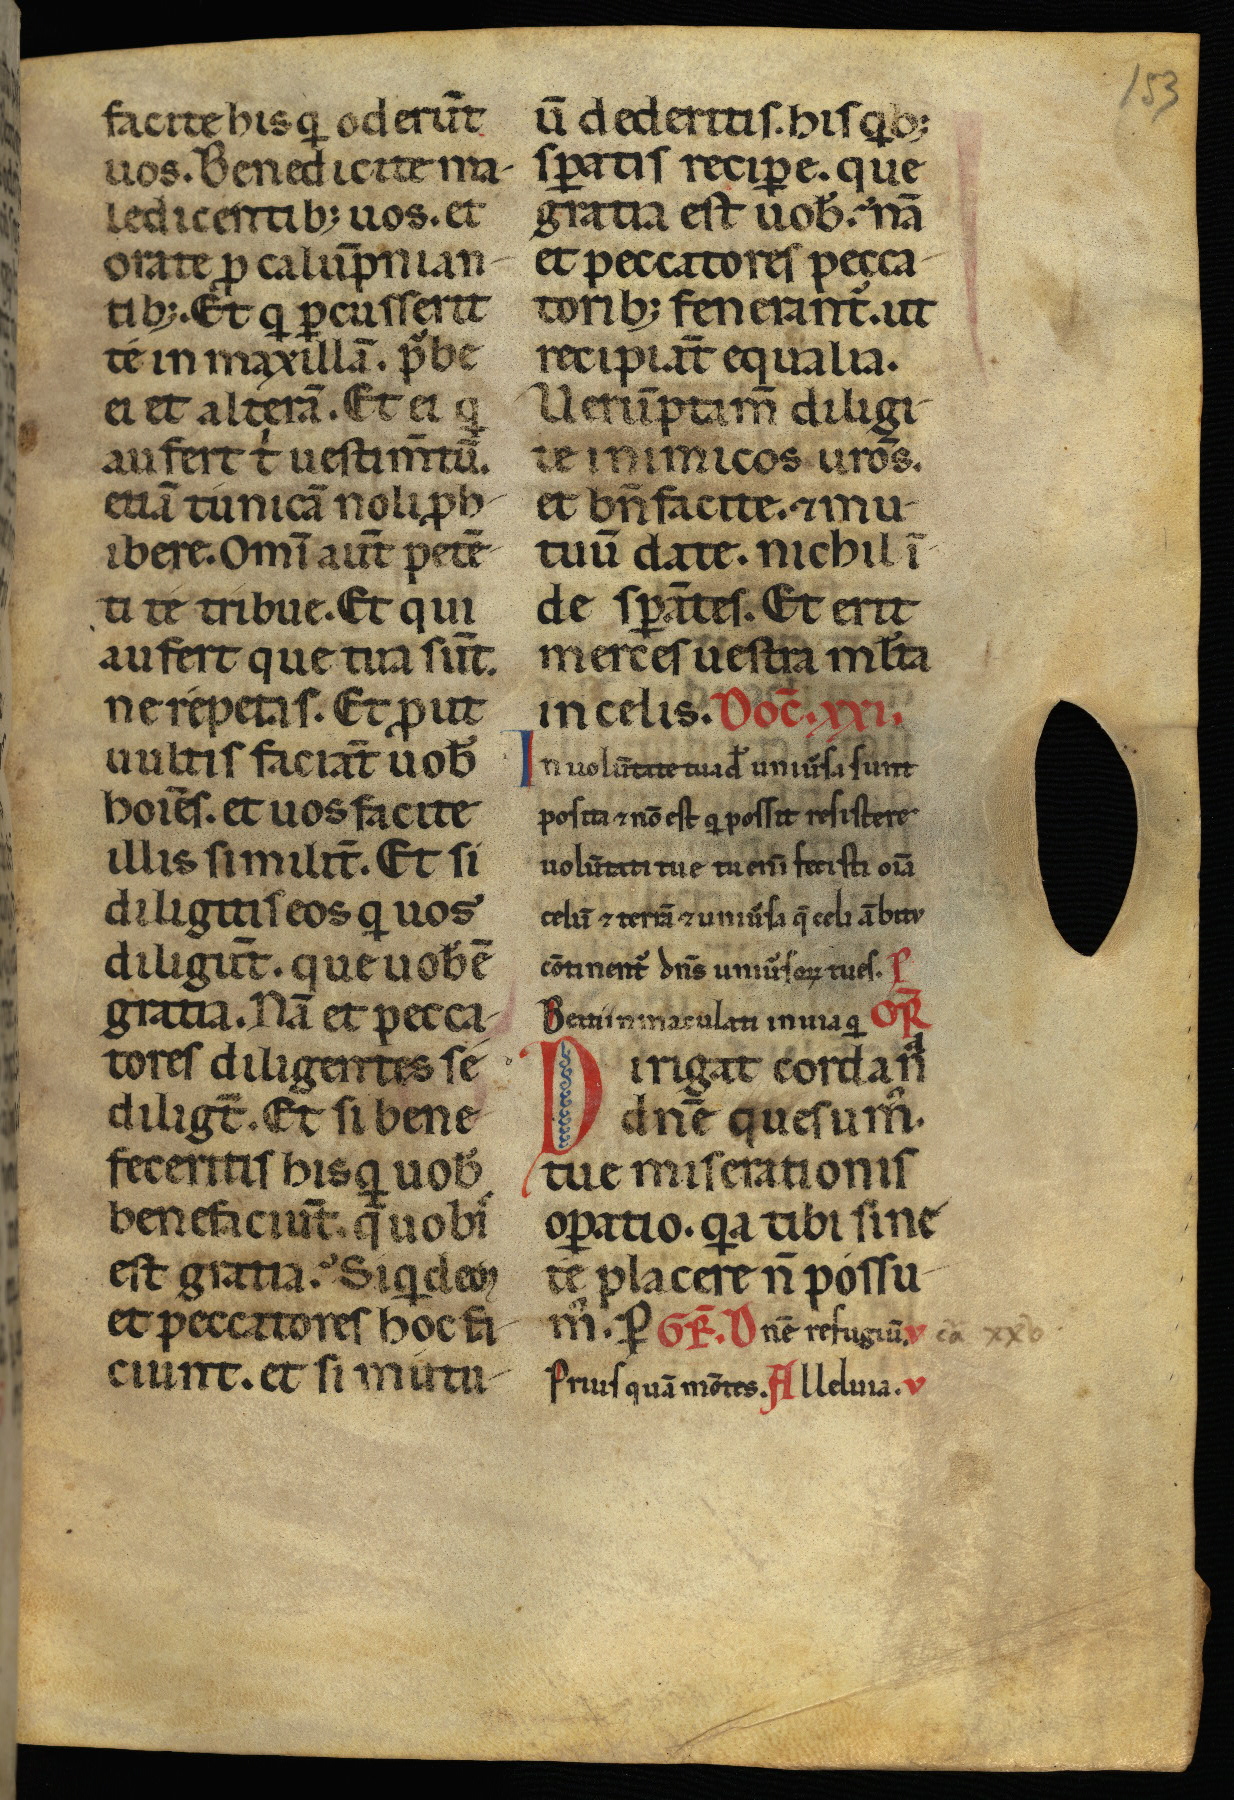 153
facite his q̇ oderūt
uos. Benedicite ma-
ledicentib; uos. et
orate ꝓ calūpnian-
tib;. Et q̇ ꝑcusserit
te in maxillā. p̄be
ei et alterā. Et ei q̇
aufert t̄ uestim̄tū.
etiā tunicā noli ꝓh-
ibere. Omī aūt petē-
ti te tribue. Et qui
aufert que tua sūt.
ne repetas. Et ꝓut
uultis faciāt uob̄
hoīes. et uos facite
illis similit̄. Et si
diligitis eos q̇ uos
diligūt. que uob̄ ē
gratia. Nā et pecca-
tores diligentes se
diligt̄. Et si bene
feceritis his q̇ uob̄
beneficiūt. q̄ uobī
est gratia. Siq̇deꝫ
et peccatores hoc fa-
ciunt. et si mutu-
ū dederitis. his q̇b;
sꝑatis reciꝑe. que
gratia est uob̄. nā
et peccatores pecca-
torib; fenerant᷑. ut
recipiāt equalia.
Uerūptam̄ diligi-
te inimicos ur̄os.
et bn̄facite. ⁊ mu-
tuū date. nichil ī-
de sꝑātes. Et erit
merces uestra ml̄ta
in celis. Doc̄. xxi.
In volūtate tua d̄ uniūsa sunt
posita ⁊ nō est q̇ possit resistere
volūtati tue tu enī fecisti oīa
celū ⁊ terrā ⁊ uniūsa q̄ celi ābitu
cōtinent᷑ dn̄s uniūsoꝝ tu es. P̄
Beati inmaculati in uia q̇ OR̄
Dirigat corda nr̄a
dn̄e quesum᷒.
tue miserationis
oꝑatio. q̇a tibi sine
te placere n̄ possu-
m᷒. P̄ GR̄. Dn̄e refugiū. v cā xxo
Prius quā mōtes. Alleluia. v